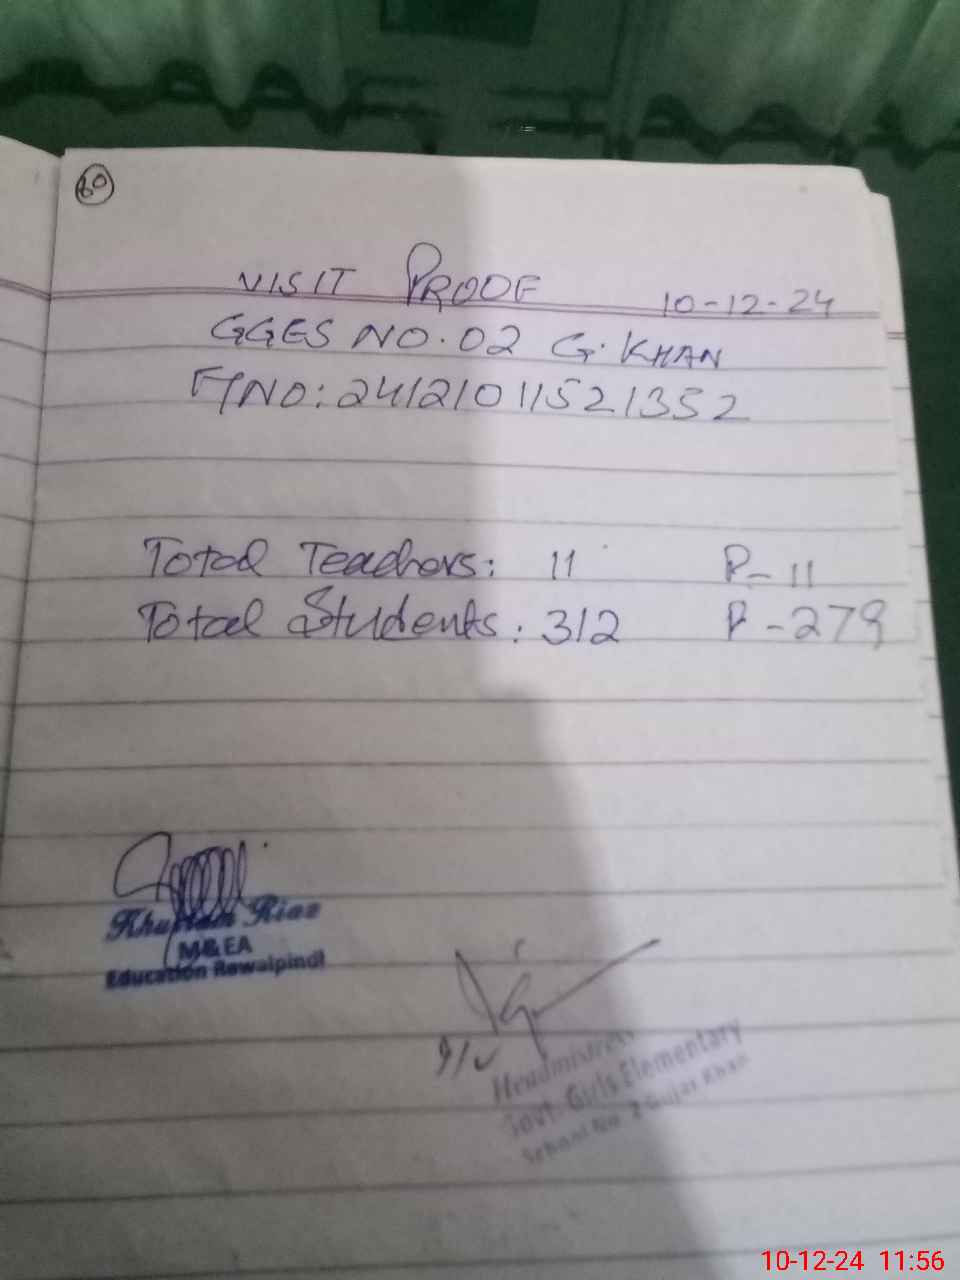 60
VISIT PROOF 10-12-24
GGES NO.02 G.KHAN
F/NO: 24121011521352
Total Teachers: 11 P-11
Total Students: 312 P-279
Khurram Riaz
M&EA
Education Rawalpindi
I/C
Headmistress
Govt. Girls Elementary
School No. 2 Gujar Khan
10-12-24 11:56